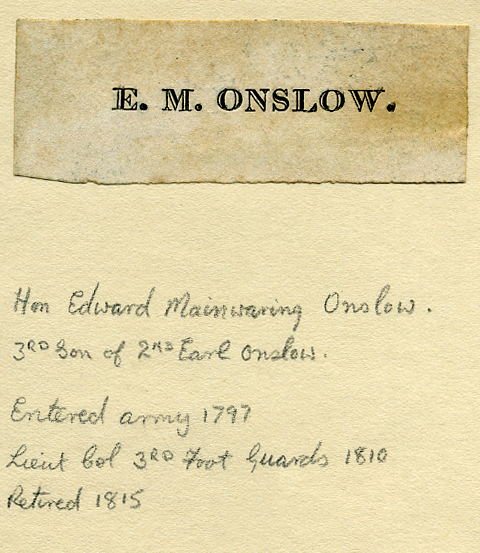 E. M. ONSLOW.
Hon Edward Mainwaring Onslow.
3RD Son of 2ND Earl Onslow.
Entered army 1797
Lieut Col 3RD Foot Guards 1810
Retired 1815